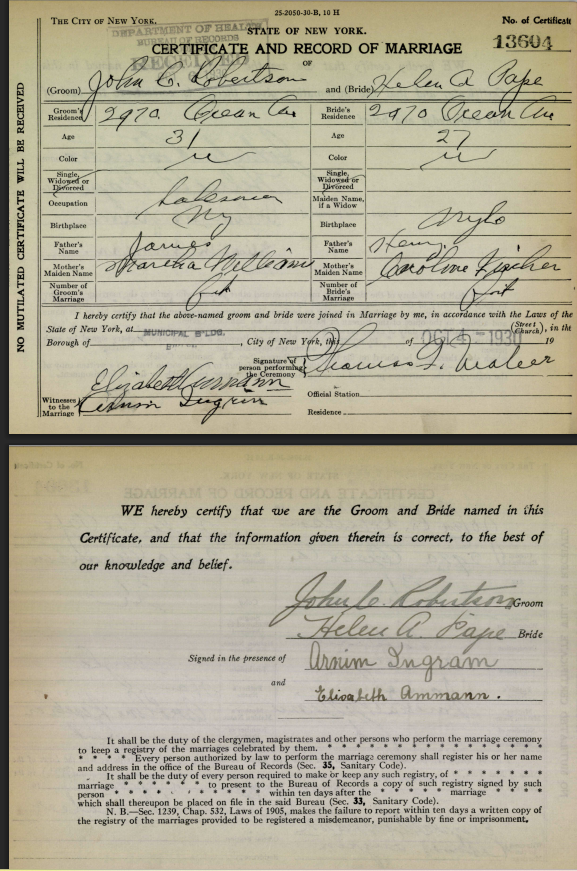 25-2050-30-B, 10 H
THE CITY OF NEW YORK.
DEPARTMENT OF HEALTH
BUREAU OF RECORDS
RECEIVED
STATE OF NEW YORK.
No. of Certificate
CERTIFICATE AND RECORD OF MARRIAGE
13604
OF
(Groom) John C. Robertson and (Bride) Helen A Pape
Groom's Residence 2970 Ocean Av Bride's Residence 2970 Ocean Av
Age 31 Age 27
Color w Color w
Single, Widowed or Divorced Single, Widowed or Divorced
Occupation Salesman Maiden Name, if a Widow
Birthplace NY Birthplace
Father's Name James Father's Name Henry
Mother's Maiden Name Martha Williams Mother's Maiden Name Caroline Fischer
Number of Groom's Marriage Number of Bride's Marriage
I hereby certify that the above-named groom and bride were joined in Marriage by me, in accordance with the Laws of the
State of New York, at MUNICIPAL BLDG. (Street Church), in the
Borough of , City of New York, this of OCT 4 - 1930 19
Signature of person performing the Ceremony Thomas F.
Elizabeth Ammann
Witnesses to the Marriage Armin Ingram
Official Station
Residence
NO MUTILATED CERTIFICATE WILL BE RECEIVED
WE hereby certify that we are the Groom and Bride named in this
Certificate, and that the information given therein is correct, to the best of
our knowledge and belief.
John C. Robertson Groom
Helen A. Pape Bride
Signed in the presence of Arnim Ingram
and
Elisabeth Ammann.
It shall be the duty of the clergymen, magistrates and other persons who perform the marriage ceremony
to keep a registry of the marriages celebrated by them. * * * * * * * * * * *
* * * * Every person authorized by law to perform the marriage ceremony shall register his or her name
and address in the office of the Bureau of Records (Sec. 35, Sanitary Code).
It shall be the duty of every person required to make or keep any such registry, of * * * * * *
marriage * * * * * to present to the Bureau of Records a copy of such registry signed by such
person * * * * * * * within ten days after the * * * * * marriage * * * *
which shall thereupon be placed on file in the said Bureau (Sec. 33, Sanitary Code).
N. B.—Sec. 1239, Chap. 532, Laws of 1905, makes the failure to report within ten days a written copy of
the registry of the marriages provided to be registered a misdemeanor, punishable by fine or imprisonment.